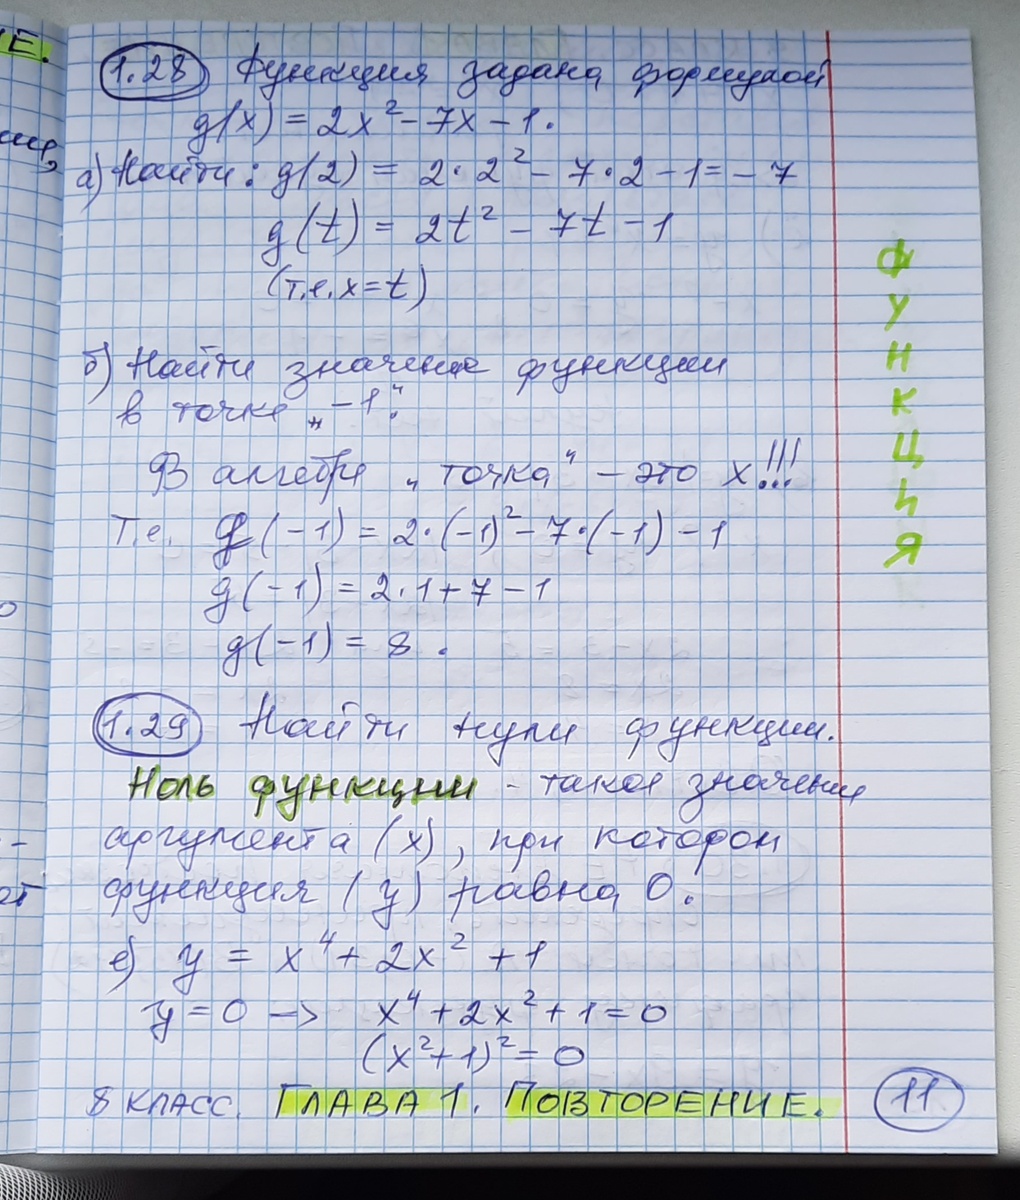 Е.
1.28 Функция задана формулой
g(x) = 2x² - 7x - 1.
а) Найти: g(2) = 2·2² - 7·2 - 1 = - 7
g(t) = 2t² - 7t - 1
(т.е. x = t)
б) Найти значение функции
в точке „-1".
В алгебре „точка" - это x!!!
Т.е. g(-1) = 2·(-1)² - 7·(-1) - 1
g(-1) = 2·1 + 7 - 1
g(-1) = 8.
1.29 Найти нули функции.
Ноль функции - такое значение
аргумента (x), при котором
функция (y) равна 0.
е) y = x⁴ + 2x² + 1
y = 0 -> x⁴ + 2x² + 1 = 0
(x² + 1)² = 0
8 КЛАСС. ГЛАВА 1. ПОВТОРЕНИЕ. 11
ФУНКЦИЯ